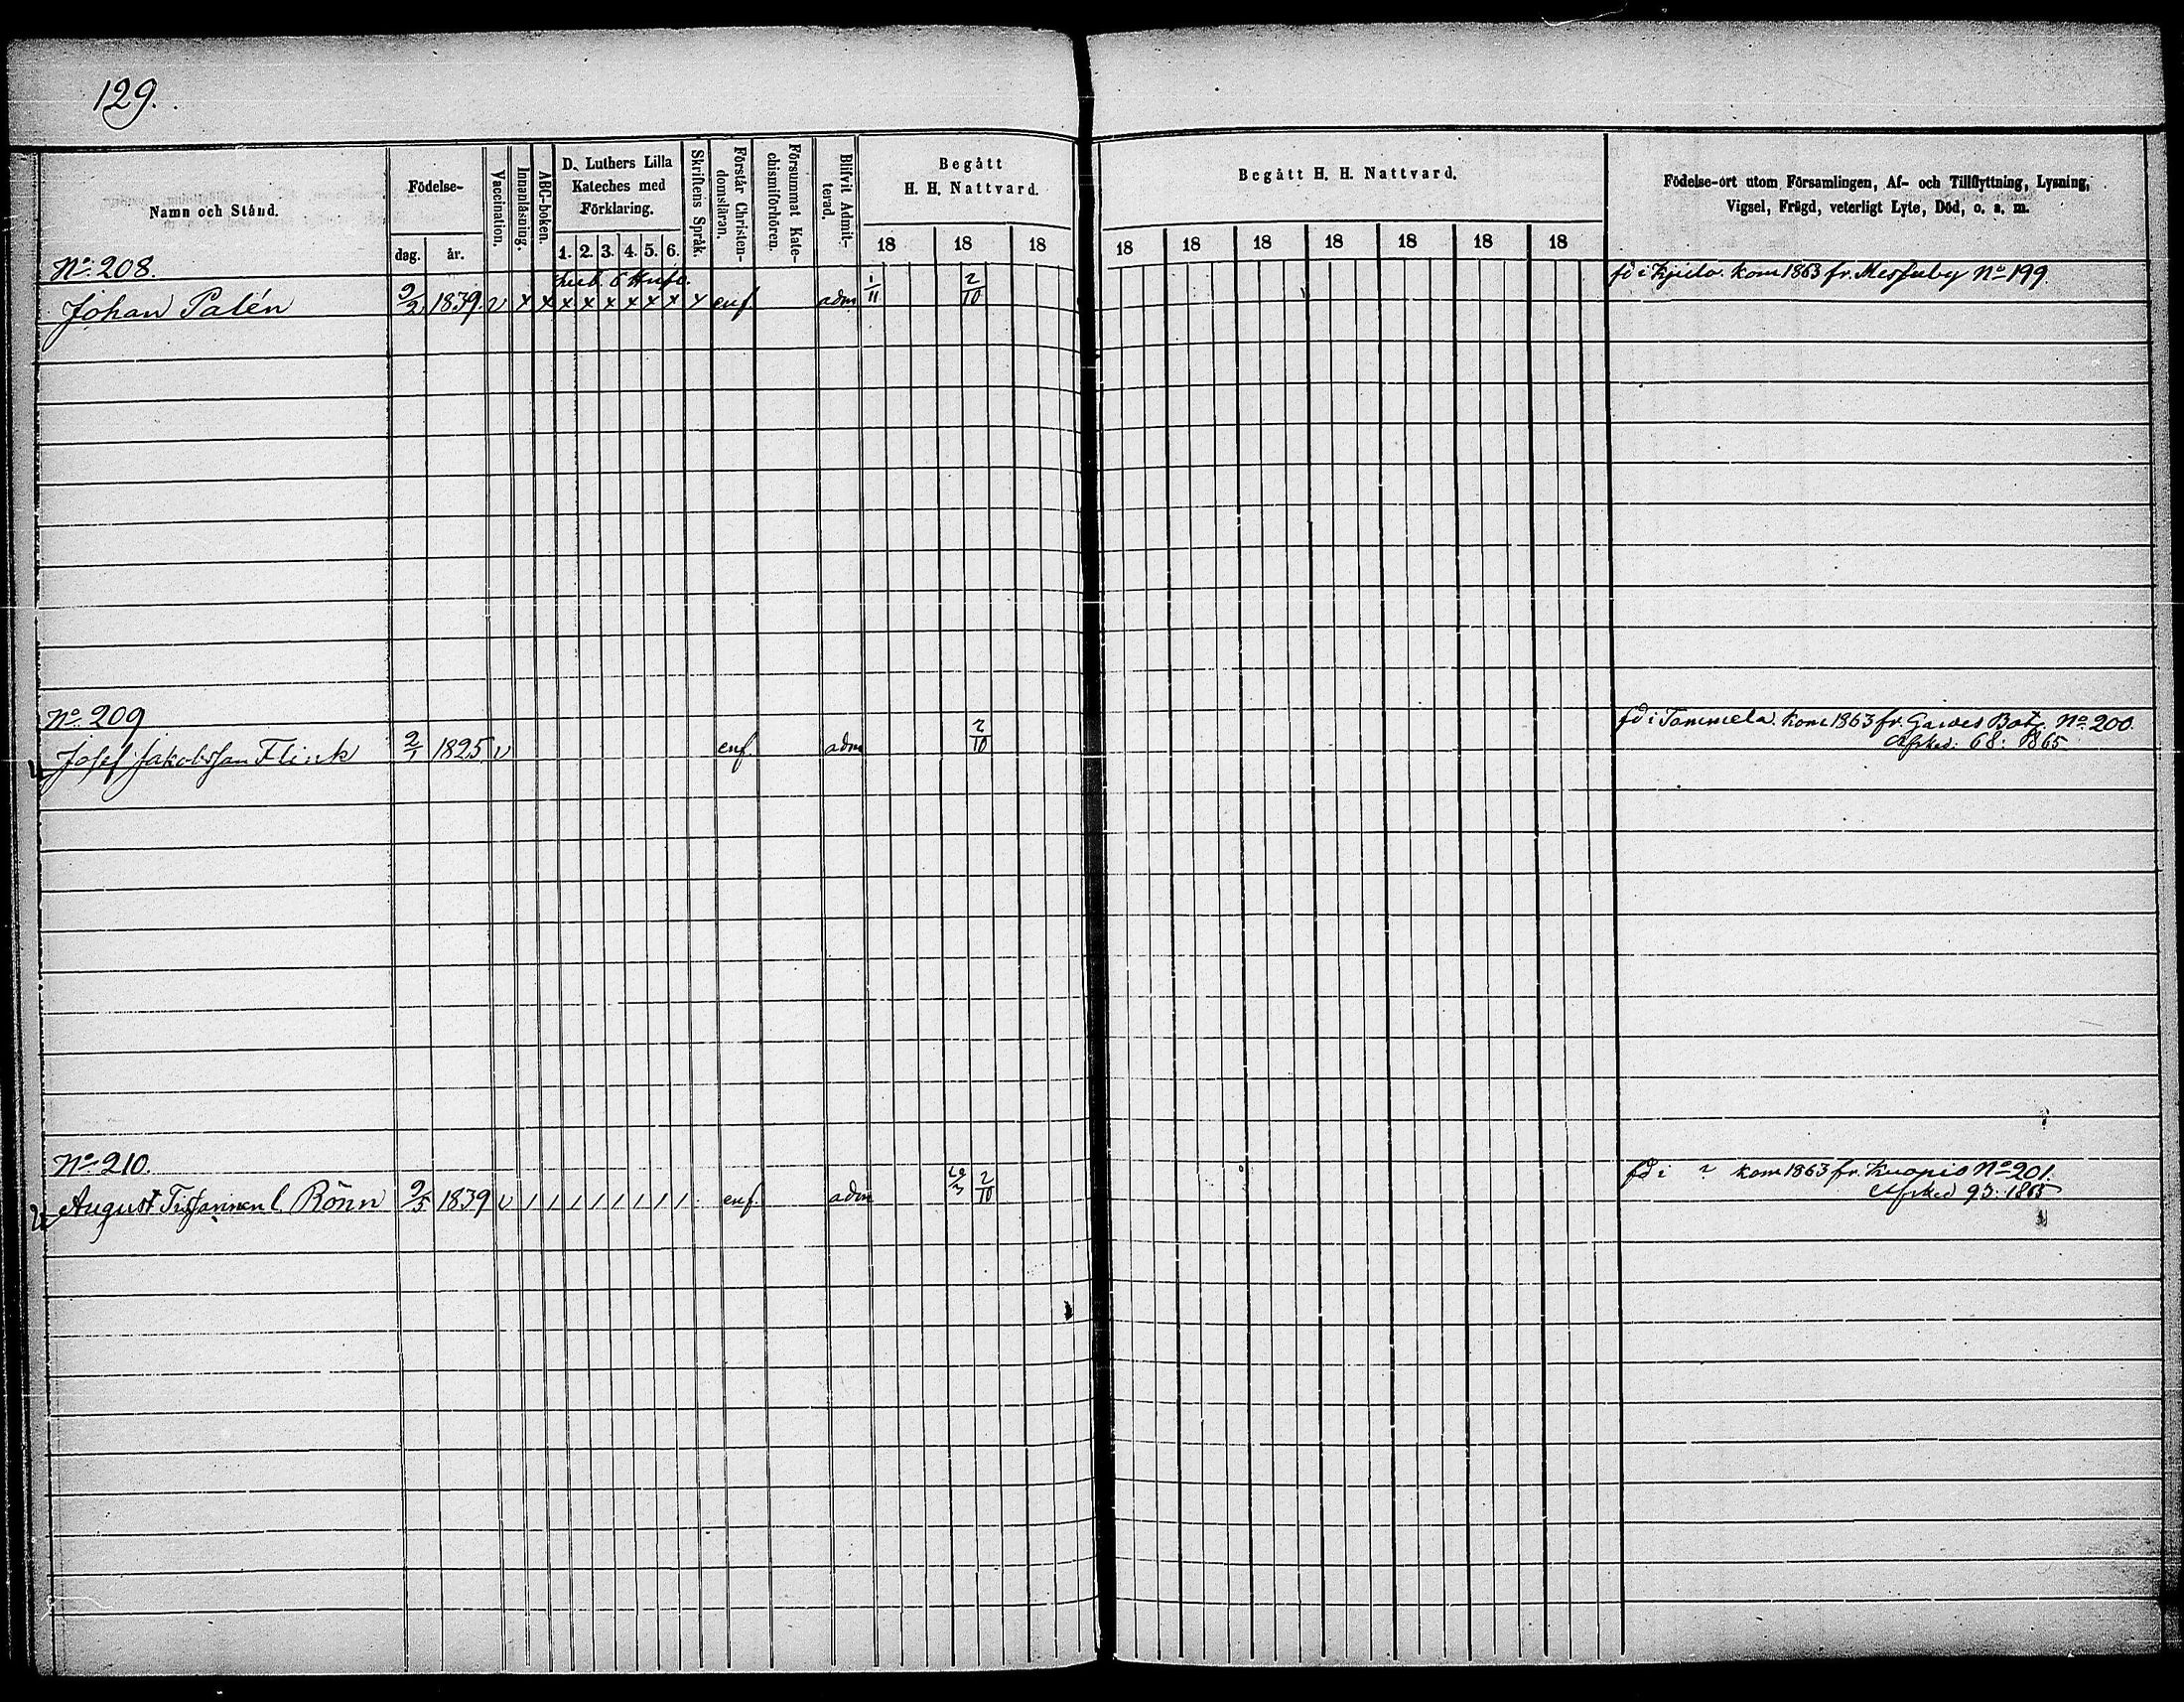 129.
Namn och Stånd.
Födelse-
dag. år.
Vaccination.
Innanläsning.
ABC-boken.
D. Luthers Lilla
Kateches med
Förklaring.
1. 2. 3. 4. 5. 6.
Skriftens Språk.
Förstår Christen-
domsläran.
Försummat Kate-
chismiförhören.
Blifvit Admit-
terad.
Begått
H. H. Nattvard.
18 18 18
Begått H. H. Nattvard.
18 18 18 18 18 18 18
Födelse-ort utom Församlingen, Af- och Tillflyttning, Lysning,
Vigsel, Frägd, veterligt Lyte, Död, o. s. m.
No 208.
fd i kom 1863 fr. Messuby No 199.
Johan Palén 9/2 1839. v x x x x x x x x x enf adm 1/11 2/10
No 209
fd i Tammela. kom 1863 fr. Gardes Bat. No 200.
Josef Jakobsson Flink 2/1 1825 v enf. adm 2/10
Afsked: 68: 1865
No 210.
fd i ? kom 1863 fr. Kuopio No 201.
August l. Rönn 9/5 1839 v / / / / / / / / enf. adm 2/10
Afsked 93: 1865